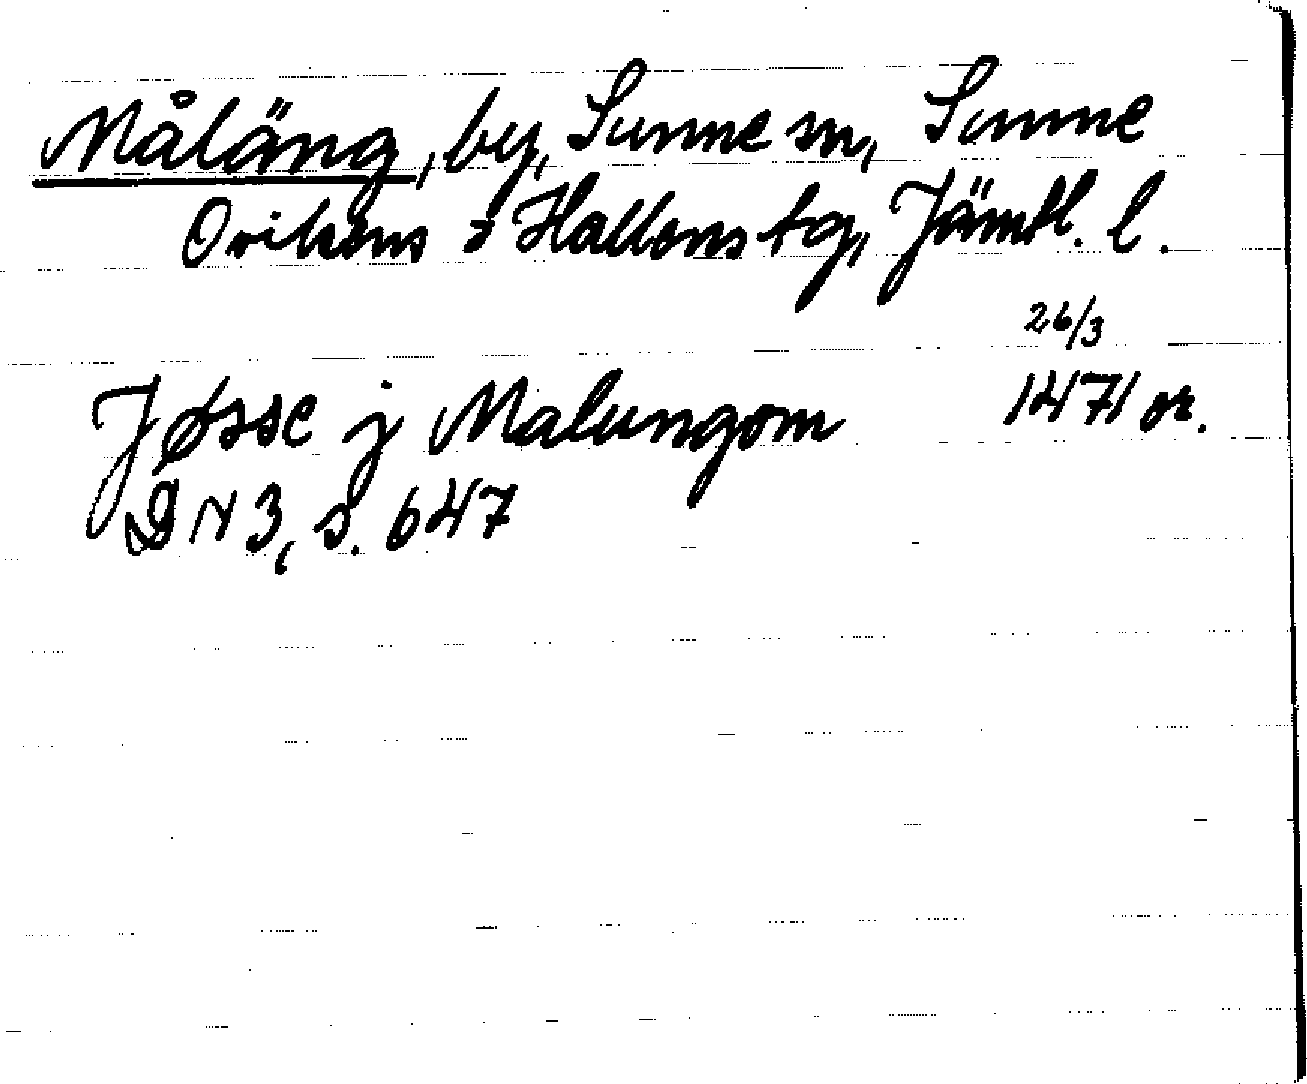 Måläng, by, Sunne sn, Sunne
Ovikens o Hallens tg, Jämtl. l.
26/3
Jøsse j Malungom 1471 or.
DN 3, s. 647